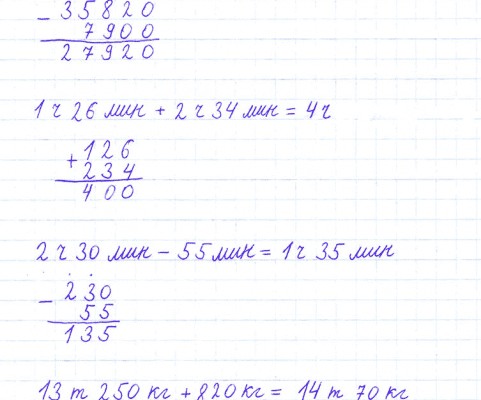 − 35820
7900
27920
1 ч 26 мин + 2 ч 34 мин = 4 ч
+ 126
234
400
2 ч 30 мин − 55 мин = 1 ч 35 мин
− 230
55
135
13 т 250 кг + 820 кг = 14 т 70 кг